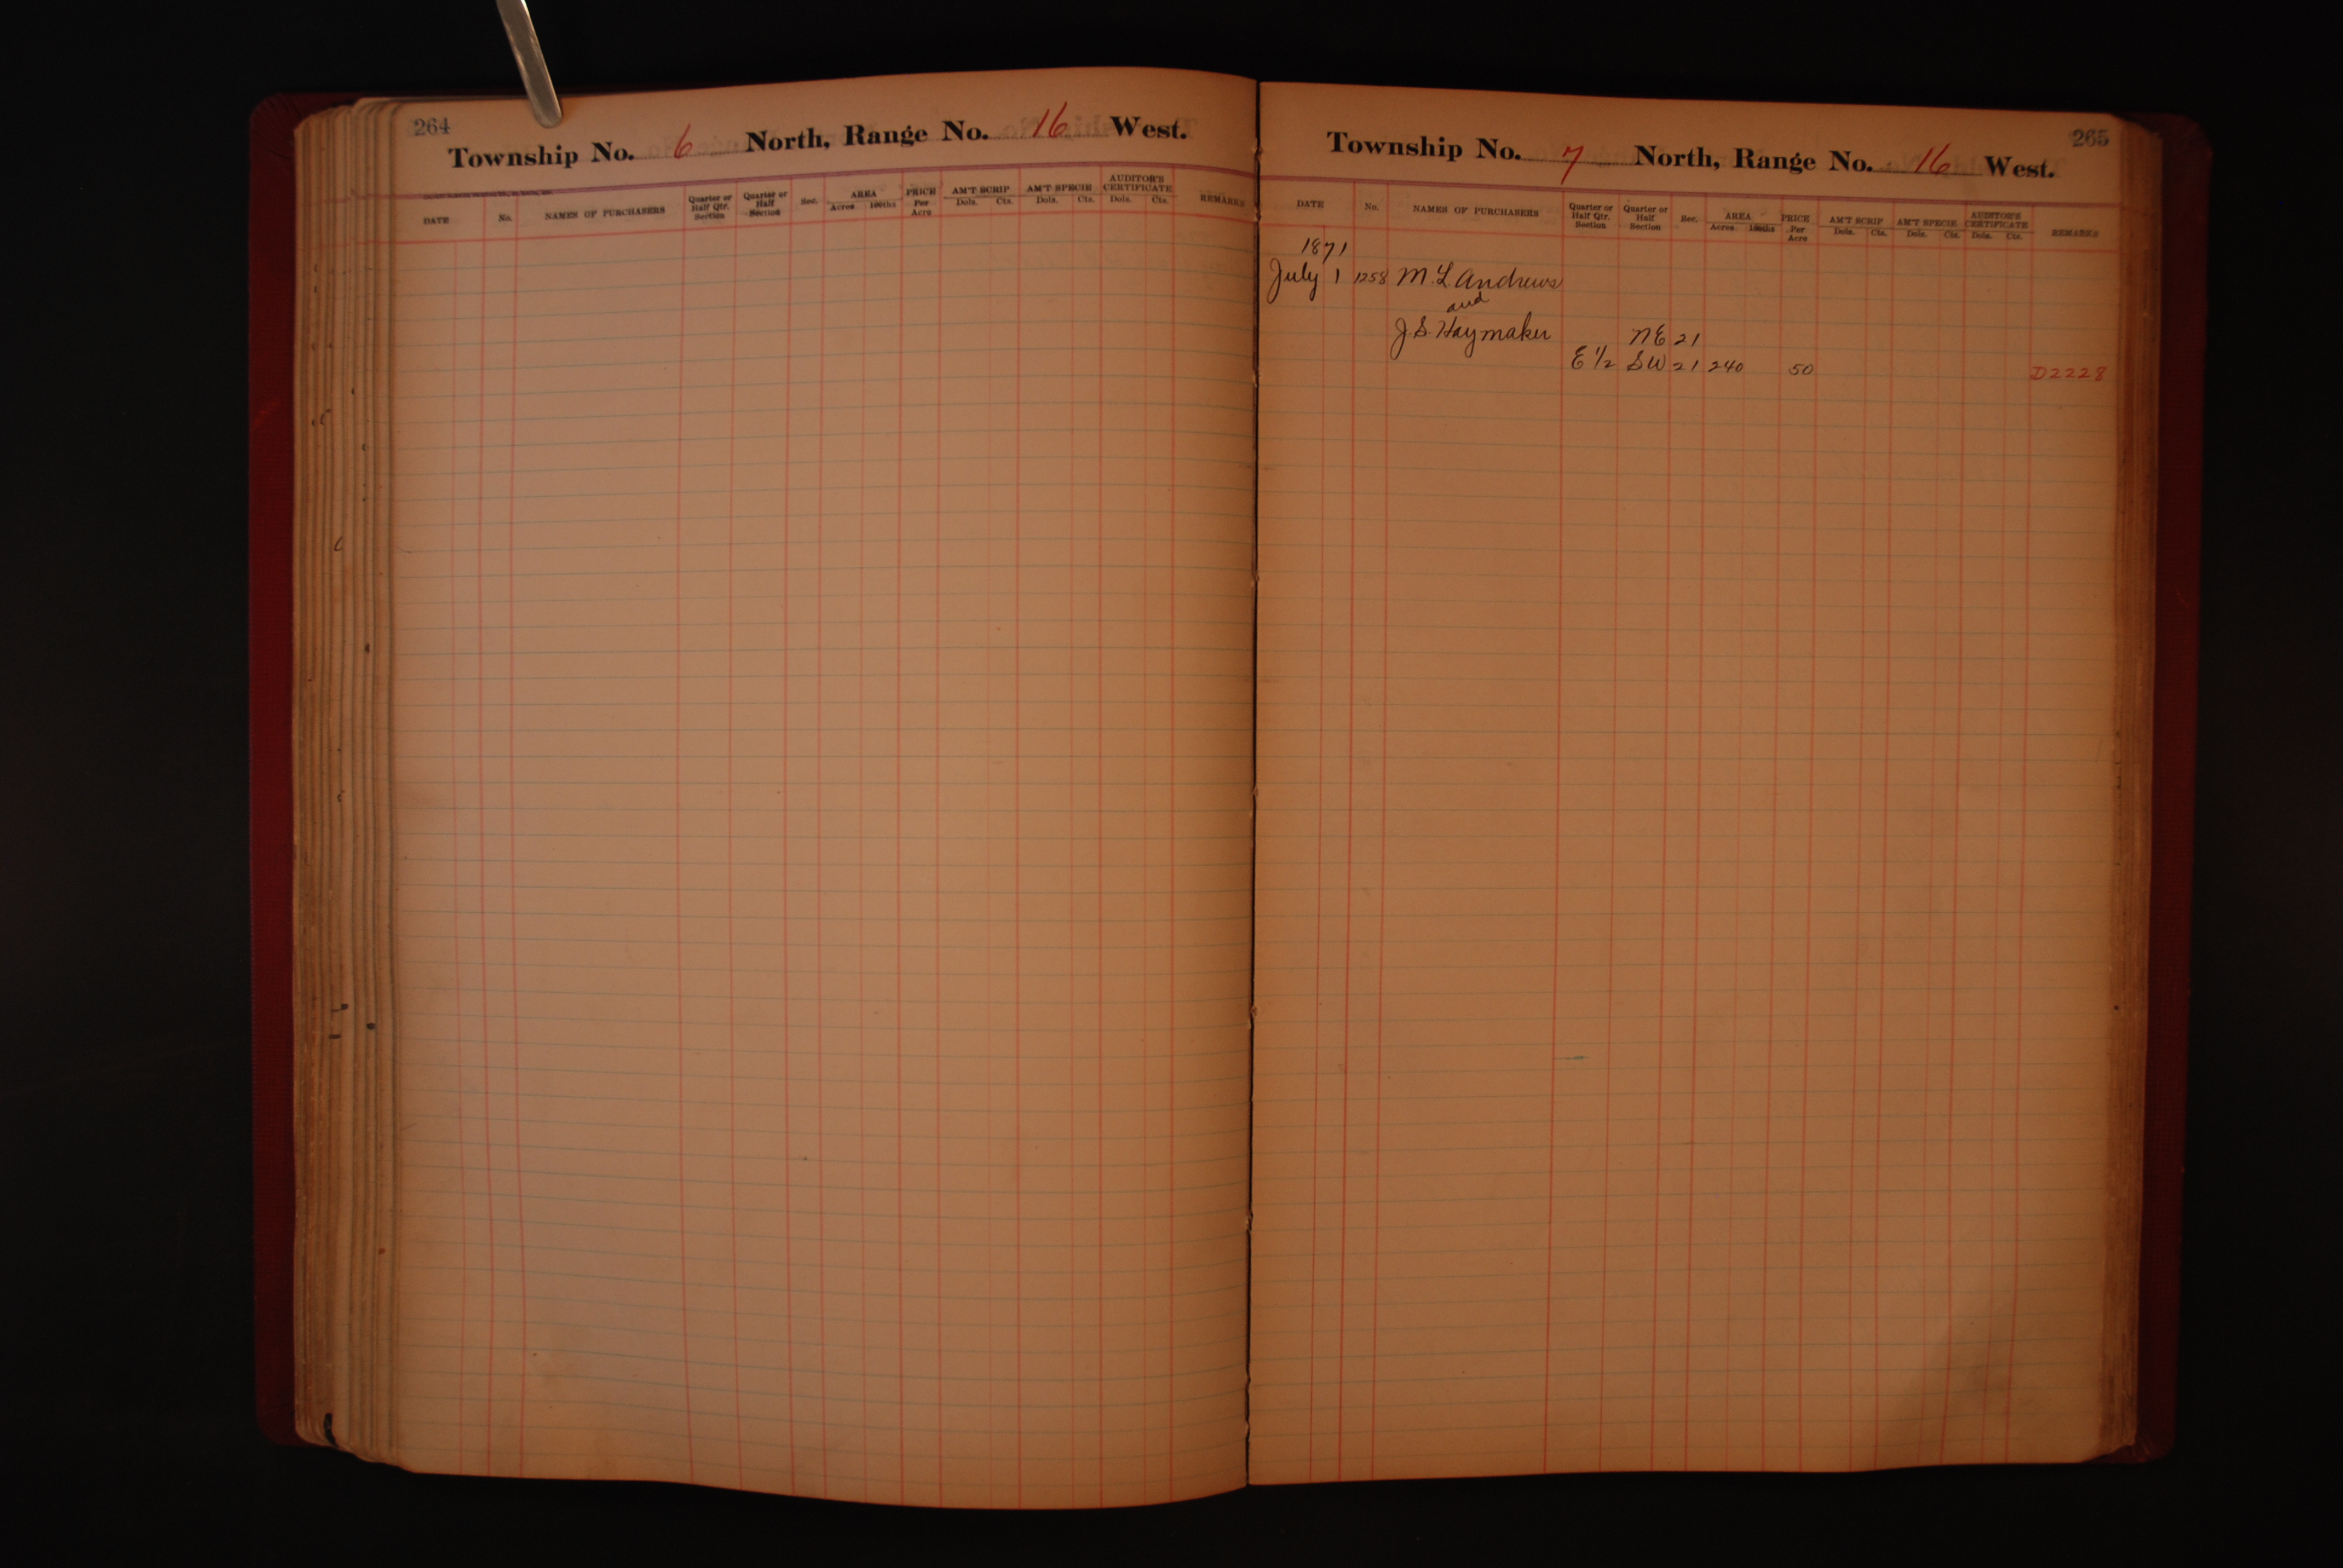 264
Township No. 6 North, Range No. 16 West.
DATE No. NAMES OF PURCHASERS Quarter or Half Qtr. Section Quarter or Half Section Sec. AREA Acres 100ths PRICE Per Acre AM'T SCRIP Dols. Cts. AM'T SPECIE Dols. Cts. AUDITOR'S CERTIFICATE Dols. Cts. REMARKS
265
Township No. 7 North, Range No. 16 West.
DATE No. NAMES OF PURCHASERS Quarter or Half Qtr. Section Quarter or Half Section Sec. AREA Acres 100ths PRICE Per Acre AM'T SCRIP Dols. Cts. AM'T SPECIE Dols. Cts. AUDITOR'S CERTIFICATE Dols. Cts. REMARKS
1871
July 1 1258 M. L. Andrews
and
J. S. Haymaker NE 21
E 1/2 SW 21 240 50 D2228